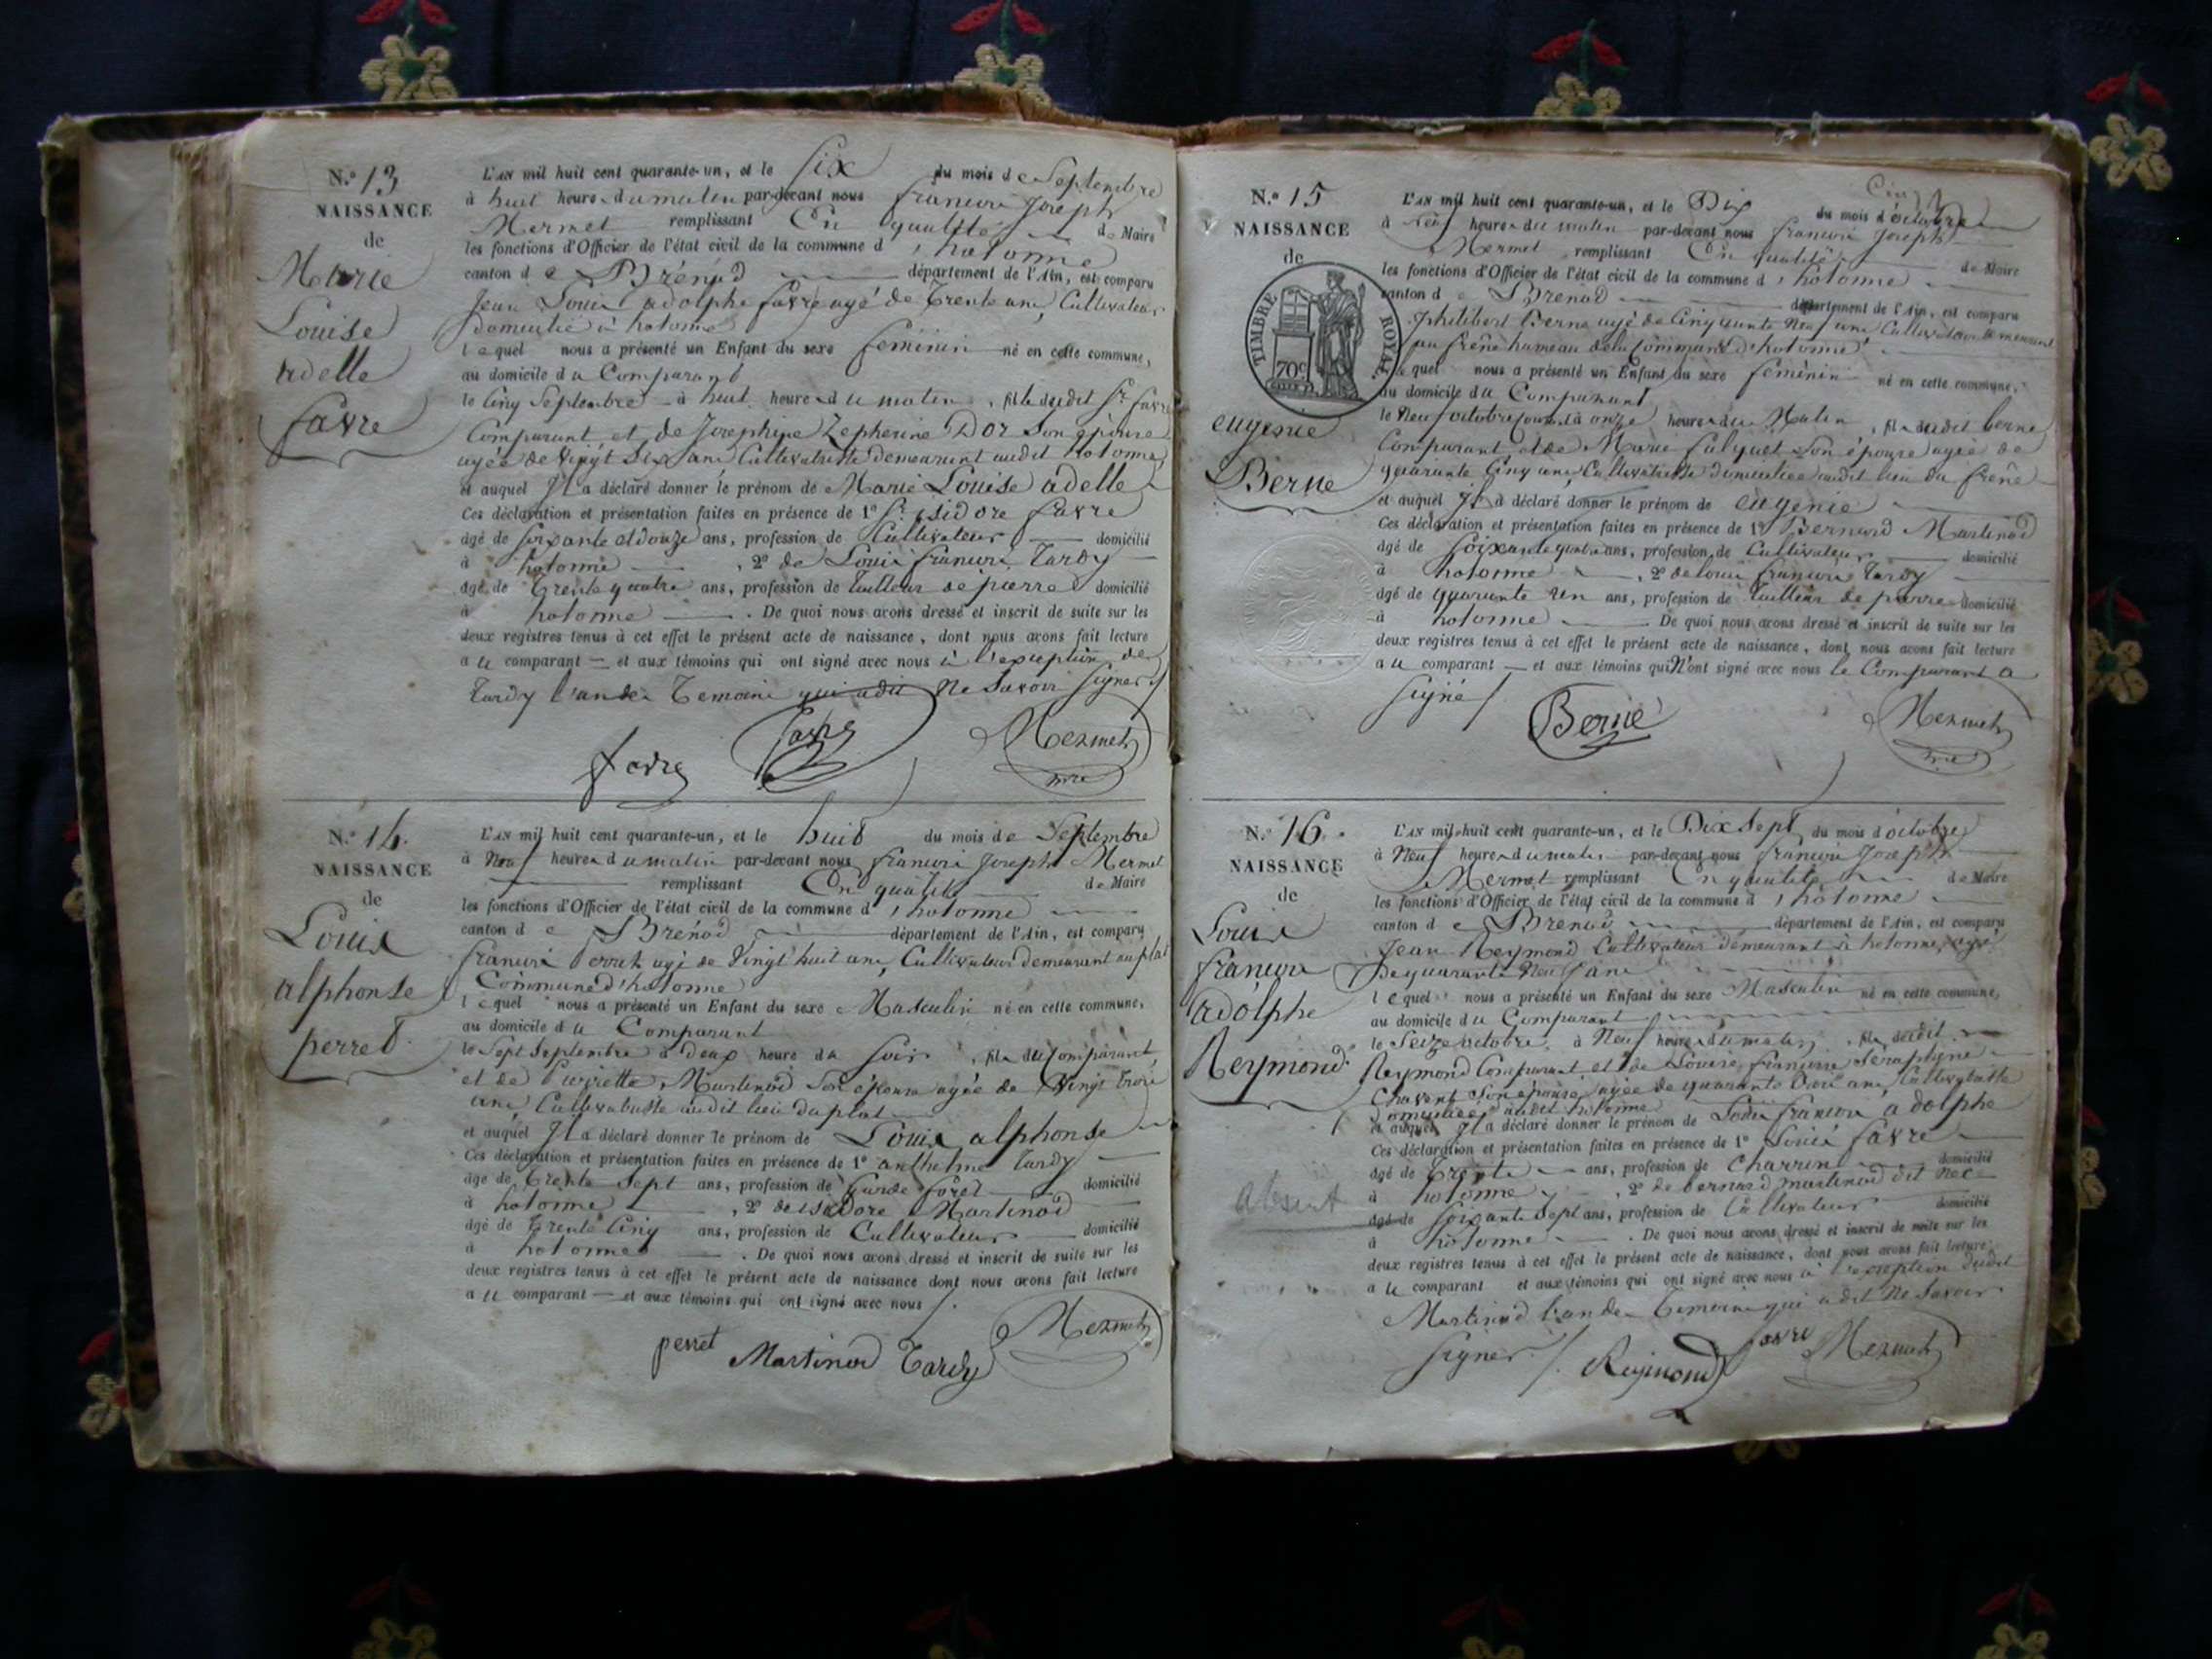 N.º 13
NAISSANCE
de
Marie
Louise
adelle
favre
L'AN mil huit cent quarante-un, et le Six du mois de Septembre
à huit heures du matin par-devant nous françois Joseph
Mermet remplissant En qualité de Maire
les fonctions d'Officier de l'état civil de la commune d'hotonne
canton de Brénod département de l'Ain, est comparu
Jean Louis adolphe favre agé de Trente ans, Cultivateur
domicilié à hotonne
lequel nous a présenté un Enfant du sexe féminin né en cette commune,
au domicile du Comparant
le Cinq Septembre à huit heures du matin, fille dudit Sr. favre
Comparant et de Josephine Zepherine Dor Son épouse
agée de vingt Six ans Cultivatrice demeurant audit hotonne
et auquel Il a déclaré donner le prénom de Marie Louise adelle
Ces déclaration et présentation faites en présence de 1º Sr. isidore favre
âgé de soixante et douze ans, profession de Cultivateur domicilié
à hotonne, 2º de Louis françois Tardy
âgé de Trente quatre ans, profession de Tailleur de pierre domicilié
à hotonne. De quoi nous avons dressé et inscrit de suite sur les
deux registres tenus à cet effet le présent acte de naissance, dont nous avons fait lecture
au comparant et aux témoins qui ont signé avec nous à l'exception de
Tardy l'un des Temoins qui a dit Ne Savoir Signer /
favre favre Mermet
mre
N.º 14.
NAISSANCE
de
Louis
alphonse
perret
L'AN mil huit cent quarante-un, et le huit du mois de Septembre
à Neuf heures du matin par-devant nous françois Joseph Mermet
remplissant En qualité de Maire
les fonctions d'Officier de l'état civil de la commune d'hotonne
canton de Brénod département de l'Ain, est comparu
françois perret agé de Vingt huit ans, Cultivateur demeurant au plat
Commune d'hotonne
lequel nous a présenté un Enfant du sexe Masculin né en cette commune,
au domicile du Comparant
le Sept Septembre à deux heures du Soir, fils du Comparant
et de Pierrette Martinod Son épouse agée de Vingt trois
ans, Cultivatrice audit lieu du plat
et auquel Il a déclaré donner le prénom de Louis alphonse
Ces déclaration et présentation faites en présence de 1º anthelme Tardy
âgé de Trente Sept ans, profession de Garde forêt domicilié
à hotonne, 2º de isidore Martinod
âgé de Trente Cinq ans, profession de Cultivateur domicilié
à hotonnes. De quoi nous avons dressé et inscrit de suite sur les
deux registres tenus à cet effet le présent acte de naissance dont nous avons fait lecture
au comparant et aux témoins qui ont signé avec nous /.
perret Martinod Tardy Mermet
N.º 15
NAISSANCE
de
TIMBRE ROYAL
70c
eugenie
Berne
L'AN mil huit cent quarante-un, et le Dix du mois d'octobre
à Neuf heures du matin par-devant nous françois Joseph
Mermet remplissant En qualité de Maire
les fonctions d'Officier de l'état civil de la commune d'hotonne
canton de Brenod département de l'Ain, est comparu
philibert Berne agé de Cinquante Neuf ans Cultivateur demeurant
au frêne hameau de la Commune d'hotonne
lequel nous a présenté un Enfant du sexe féminin né en cette commune,
au domicile du Comparant
le Neuf octobre à onze heures du Matin, fille dudit berne
Comparant et de Marie Son épouse agée de
quarante Cinq ans, Cultivatrice domiciliée audit lieu du frêne
et auquel Il a déclaré donner le prénom de eugénie
Ces déclaration et présentation faites en présence de 1º Bernard Martinod
âgé de Soixante quatre ans, profession de Cultivateur domicilié
à hotonne, 2º de louis françois Tardy
âgé de quarante Un ans, profession de Tailleur de pierre domicilié
à hotonne De quoi nous avons dressé et inscrit de suite sur les
deux registres tenus à cet effet le présent acte de naissance, dont nous avons fait lecture
au comparant et aux témoins qui N'ont signé avec nous le Comparant a
signé /
Berne Mermet
mre
N.º 16.
NAISSANCE
de
Louis
françois
adolphe
Reymond
absent
L'AN mil huit cent quarante-un, et le Dix Sept du mois d'octobre
à Neuf heures du matin par-devant nous françois Joseph
Mermet remplissant En qualité de Maire
les fonctions d'Officier de l'état civil de la commune d'hotonne
canton de Brenod département de l'Ain, est comparu
Jean Reymond Cultivateur demeurant à hotonne, agé
de quarante Neuf ans
lequel nous a présenté un Enfant du sexe Masculin né en cette commune,
au domicile du Comparant
le Seize octobre à Neuf heures du matin, fils dudit
Reymond Comparant et de Louise françoise Séraphine
Chavent Son épouse, agée de quarante trois ans, Cultivatrice
domiciliée audit hotonne
et auquel Il a déclaré donner le prénom de Louis françois adolphe
Ces déclaration et présentation faites en présence de 1º Louis favre
âgé de Trente ans, profession de Charron domicilié
à hotonne, 2º de bernard martinod dit
âgé de Soixante Sept ans, profession de Cultivateur domicilié
à hotonne. De quoi nous avons dressé et inscrit de suite sur les
deux registres tenus à cet effet le présent acte de naissance, dont nous avons fait lecture
au comparant et aux témoins qui ont signé avec nous à l'exception dudit
Martinod l'un des Temoins qui a dit Ne Savoir
Signer /. Reymond favre Mermet